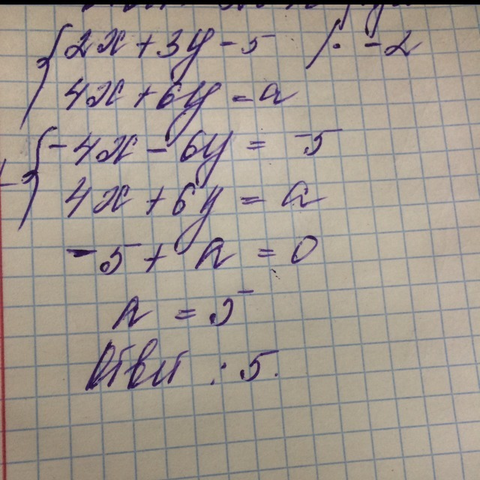 2x + 3y - 5 /· -2
4x + 6y = a
-4x - 6y = -5
4x + 6y = a
-5 + a = 0
a = 5
Ответ : 5.